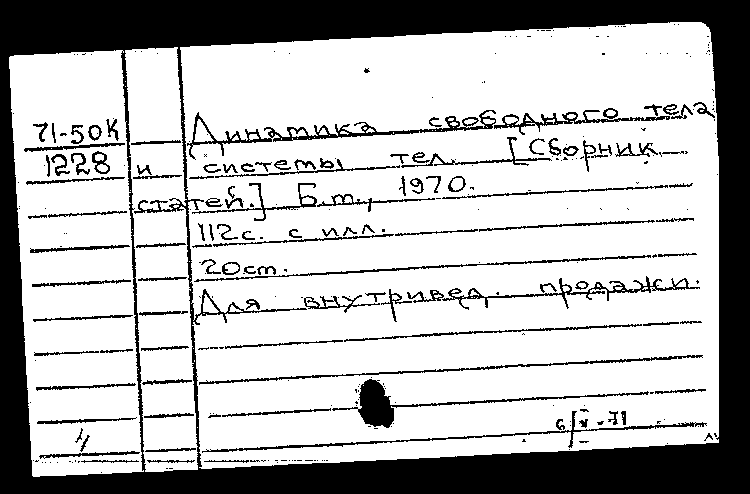 71-50К Динамика свободного тела
1228 и системы тел. [Сборник
статей.] Б.м., 1970.
112с. с илл.
20см.
Для внутривед. продажи.
4
6/V-71